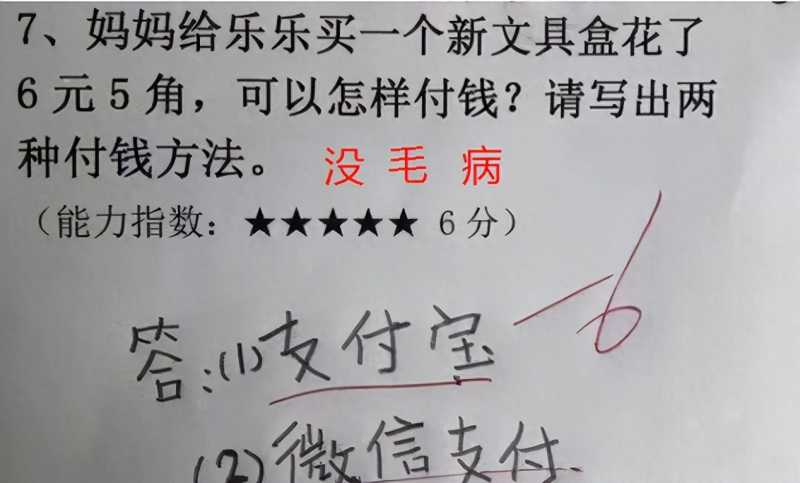 7、妈妈给乐乐买一个新文具盒花了
6元5角，可以怎样付钱？请写出两
种付钱方法。 没毛病
（能力指数：★★★★★ 6分）
-6
答:(1)支付宝
(2)微信支付.